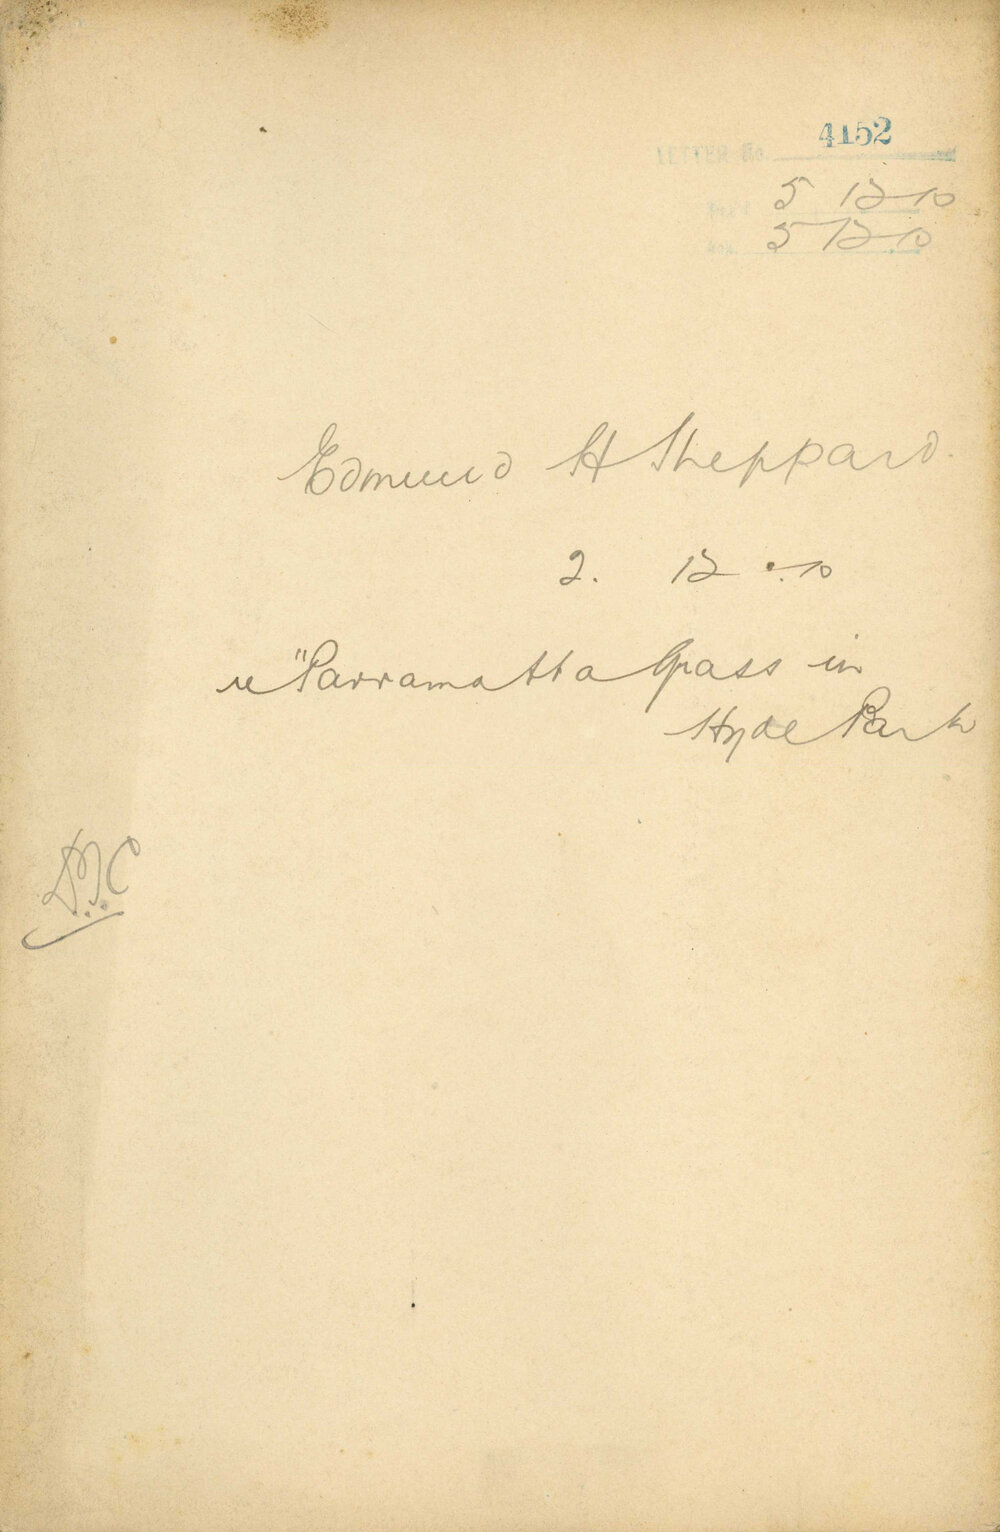 LETTER No 4152
5 12 10
5 12 10
Edmund H Sheppard.
2. 12 . 10
re "Parramatta Grass in
Hyde Park